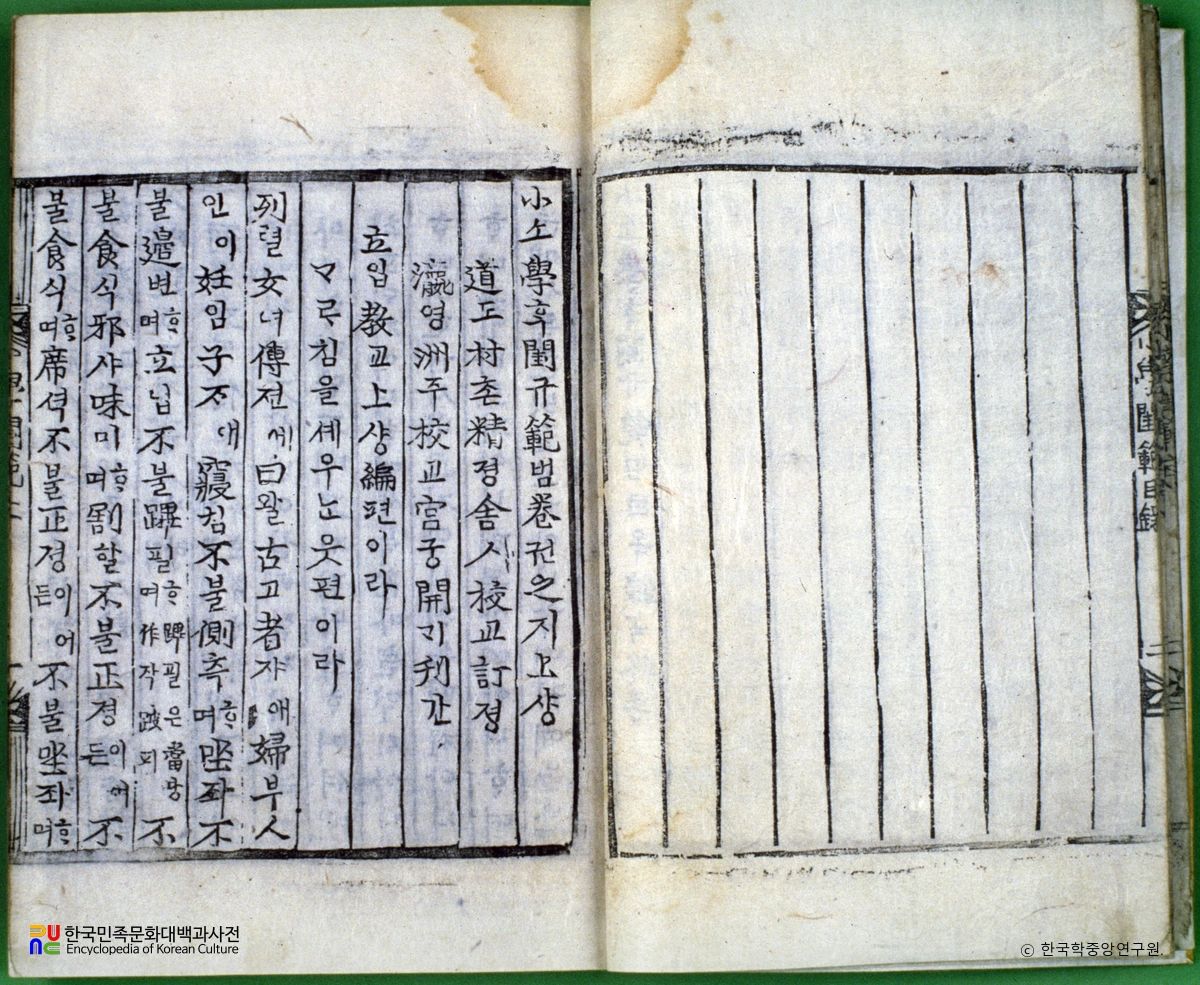 小學閨範目錄 二
小소學ᄒᆞᆨ閨규範범卷권之지上샹
道도村촌精졍舍사校교訂졍
瀛영洲주校교宮궁開ᄀᆡ刋간
立입敎교上샹編편이라
ᄀᆞᄅᆞ침을셰우ᄂᆞᆫ웃편이라
列렬女녀傳젼에曰왈古고者쟈애婦부人
인이姙임子ᄌᆞ애寢침不불側측ᄒᆞ며坐좌不
불邊변ᄒᆞ며立닙不불蹕필ᄒᆞ며蹕필은當당作작跛피不
불食식邪샤味미ᄒᆞ며割할不불正졍이어든不
불食식ᄒᆞ며席셕不불正졍이어든不불坐좌ᄒᆞ며
한국민족문화대백과사전
Encyclopedia of Korean Culture
© 한국학중앙연구원